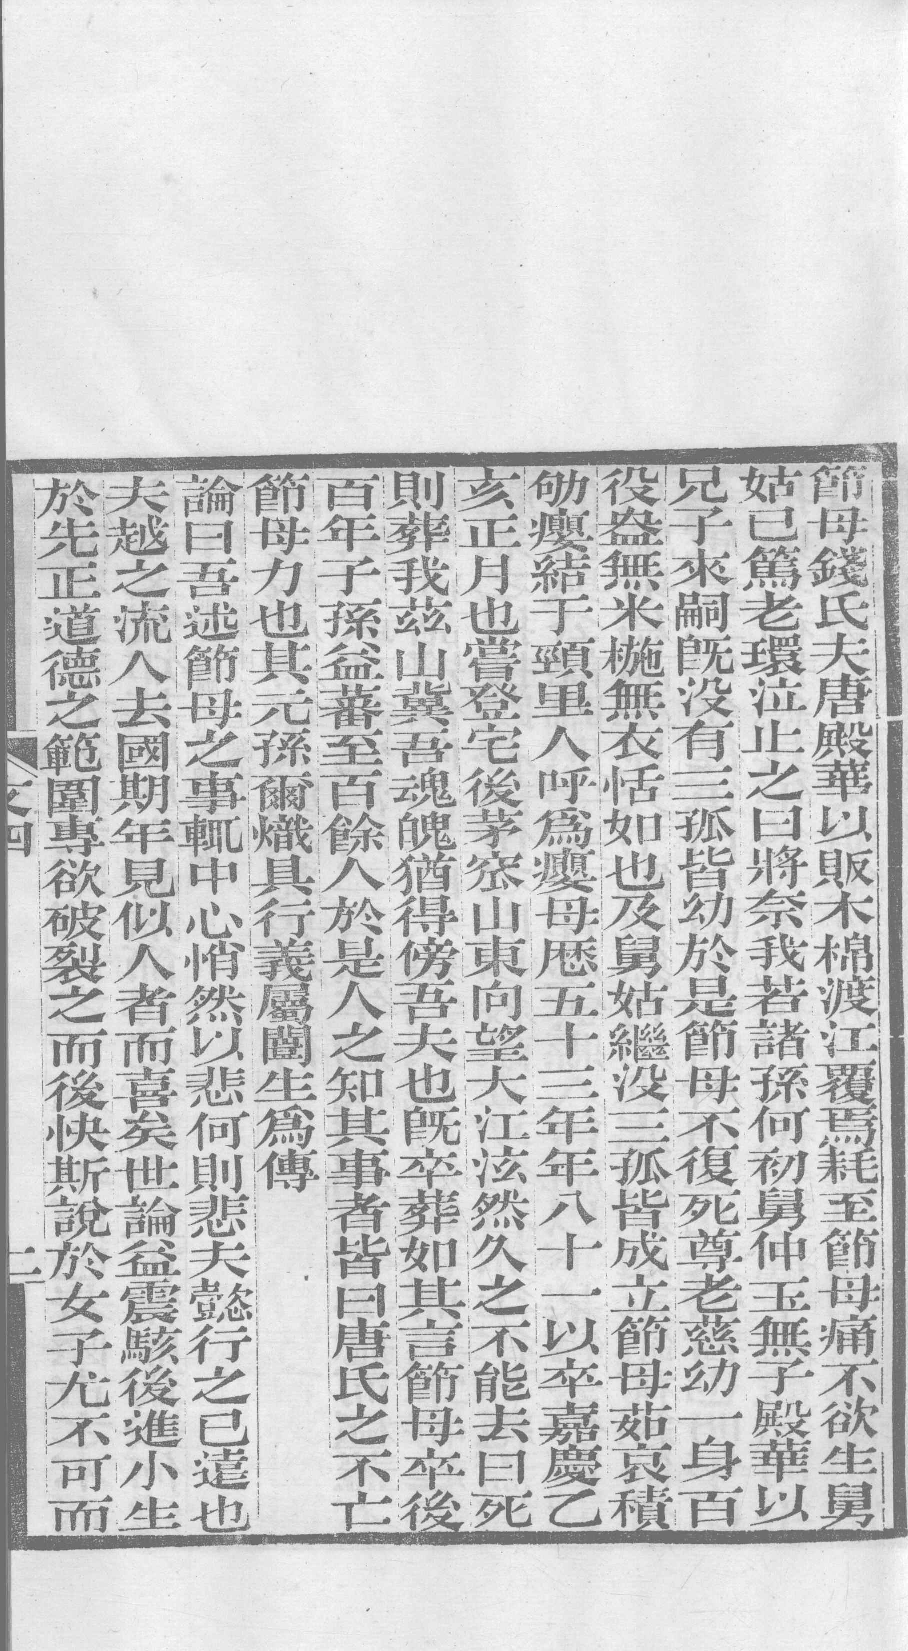 節母錢氏夫唐殿華以販木棉渡江覆焉耗至節母痛不欲生舅
姑已篤老環泣止之曰將奈我若諸孫何初舅仲玉無子殿華以
兄子來嗣旣没有三孤皆幼於是節母不復死尊老慈幼一身百
役盎無米椸無衣恬如也及舅姑繼没三孤皆成立節母茹哀積
劬癭結于頸里人呼爲癭母歷五十三年年八十一以卒嘉慶乙
亥正月也嘗登宅後茅窑山東向望大江泫然久之不能去曰死
則葬我茲山冀吾魂魄猶得傍吾夫也旣卒葬如其言節母卒後
百年子孫益蕃至百餘人於是人之知其事者皆曰唐氏之不亡
節母力也其元孫爾熾具行義屬闓生爲傳
論曰吾述節母之事輒中心悄然以悲何則悲夫懿行之已遠也
夫越之流人去國期年見似人者而喜矣世論益震駭後進小生
於先正道德之範圍專欲破裂之而後快斯說於女子尤不可而
文四
二